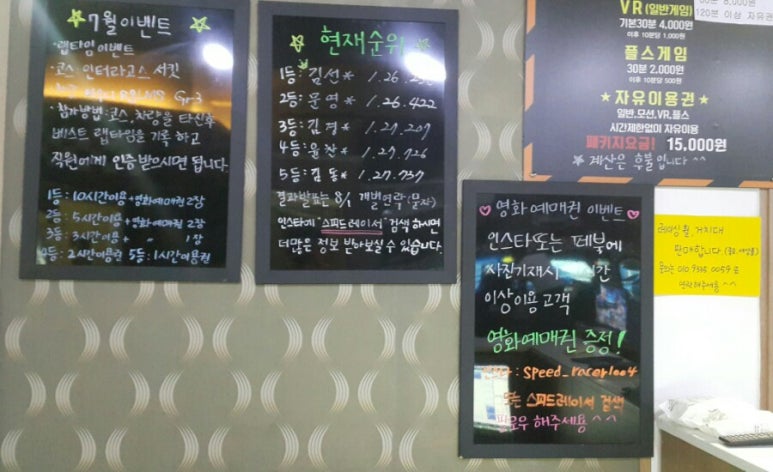 7월 이벤트
·랩타임 이벤트
·코스: 인터라고스 서킷
Gr.3
·참가방법: 코스, 차량을 타신후
베스트 랩타임을 기록하고
직원에게 인증 받으시면 됩니다.
1등: 10시간이용+영화예매권 2장
2등: 5시간이용+영화예매권 2장
3등: 3시간이용+ 〃 1장
4등: 2시간이용권 5등: 1시간이용권
현재순위
1등: 김선* 1.26.
2등: 문영* 1.26.422
3등: 김경* 1.27.207
4등: 윤찬* 1.27.726
5등: 김동* 1.27.737
결과발표는 8/1 개별연락(문자)
인스타에 "스피드레이서" 검색하시면
더많은 정보 받아보실수 있습니다.
VR (일반게임)
기본30분 4,000원
이후 10분당 1,000원
플스게임
30분 2,000원
이후 10분당 500원
★자유이용권★
일반,모션,VR,플스
시간제한없이 자유이용
패키지요금! 15,000원
☆ 계산은 후불입니다 ^^
120분 이상 자유
♡영화예매권 이벤트♡
인스타또는 페북에
사진기재시 시간
이상이용 고객
영화예매권 증정!
: speed_racer1004
스피드레이서 검색
팔로우 해주세용 ^^
레이싱휠, 거치대
판매합니다.
연락해주세용 ^^